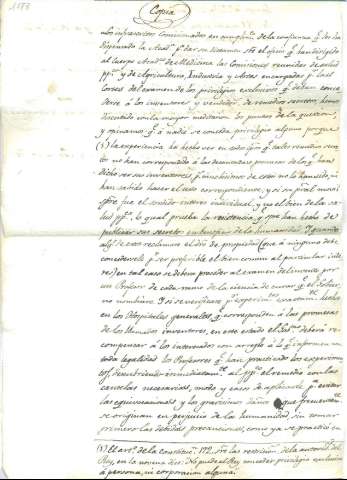 Copia
Los infrascritos Comisionados en cumplimto. de la confianza qe. les ha
dispensado la Acada. pa. dar su dictamen sre. el oficio qe. han dirigido
al cuerpo Acadco. de Medicina las Comisiones reunidas de salud
ppca. y de Agricultura, Industria y Artes encargadas pr. las
Cortes del examen de los privilegios exclusivos qe. deban conce-
derse á los inventores y vendedes. de remedios secretos, hemos
discutido con la mayor meditacion los puntos de la question,
y opinamos qe. á nadie se conceda privilegio alguno porque
(1) la experiencia ha hecho ver en este qe. tales remedios secre-
tos no han correspondido á las desmedidas promesas de los qe. han
dicho ser sus inventores, qe. muchisimos de estos no lo han sido, ni
han sabido hacer el uso correspondiente, y si su pral. movil
sre. fue el sordido interes individual, y no el bien de la sa-
lud ppca. lo qual prueba la resistencia qe. spre. han hecho de
publicar sus secretos en beneficio de la humanidad. Y quando
algo. de estos reclamare el dro. de propiedad (que á ninguno debe
concedersele pr. ser preferible el bien comun al particular inte-
res) en tal caso se debera proceder al examen del invento por
un Profesor de cada ramo de la ciencia de curar qe. el Gobier-
no nombrare. Y si se verificare pr. experimtos. exactamte. hechos
en los Hospitales generales qe. corresponden á las promesas
de los llamados inventores, en este estado el Gobno. deberá re-
compensar á los interesados con arreglo á lo qe. informen con
toda legalidad los Profesores qe. han practicado los experimen-
tos, descubriendo inmediatamte. al ppco. el remedio con las
cautelas necesarias, modo y casos de aplicarle pa. evitar
las equivocaciones y los gravisimos daños que frecuentemte.
se originan en perjuicio de la humanidad, sin tomar
primero las debidas precauciones, como ya se practicó en
(1) El arto. de la constitucn. 172, sre. las restriccions. de la autorid. del
Rey, en la novena dice: No puede el Rey conceder privilegio exclusivo
á persona, ni corporacion alguna.